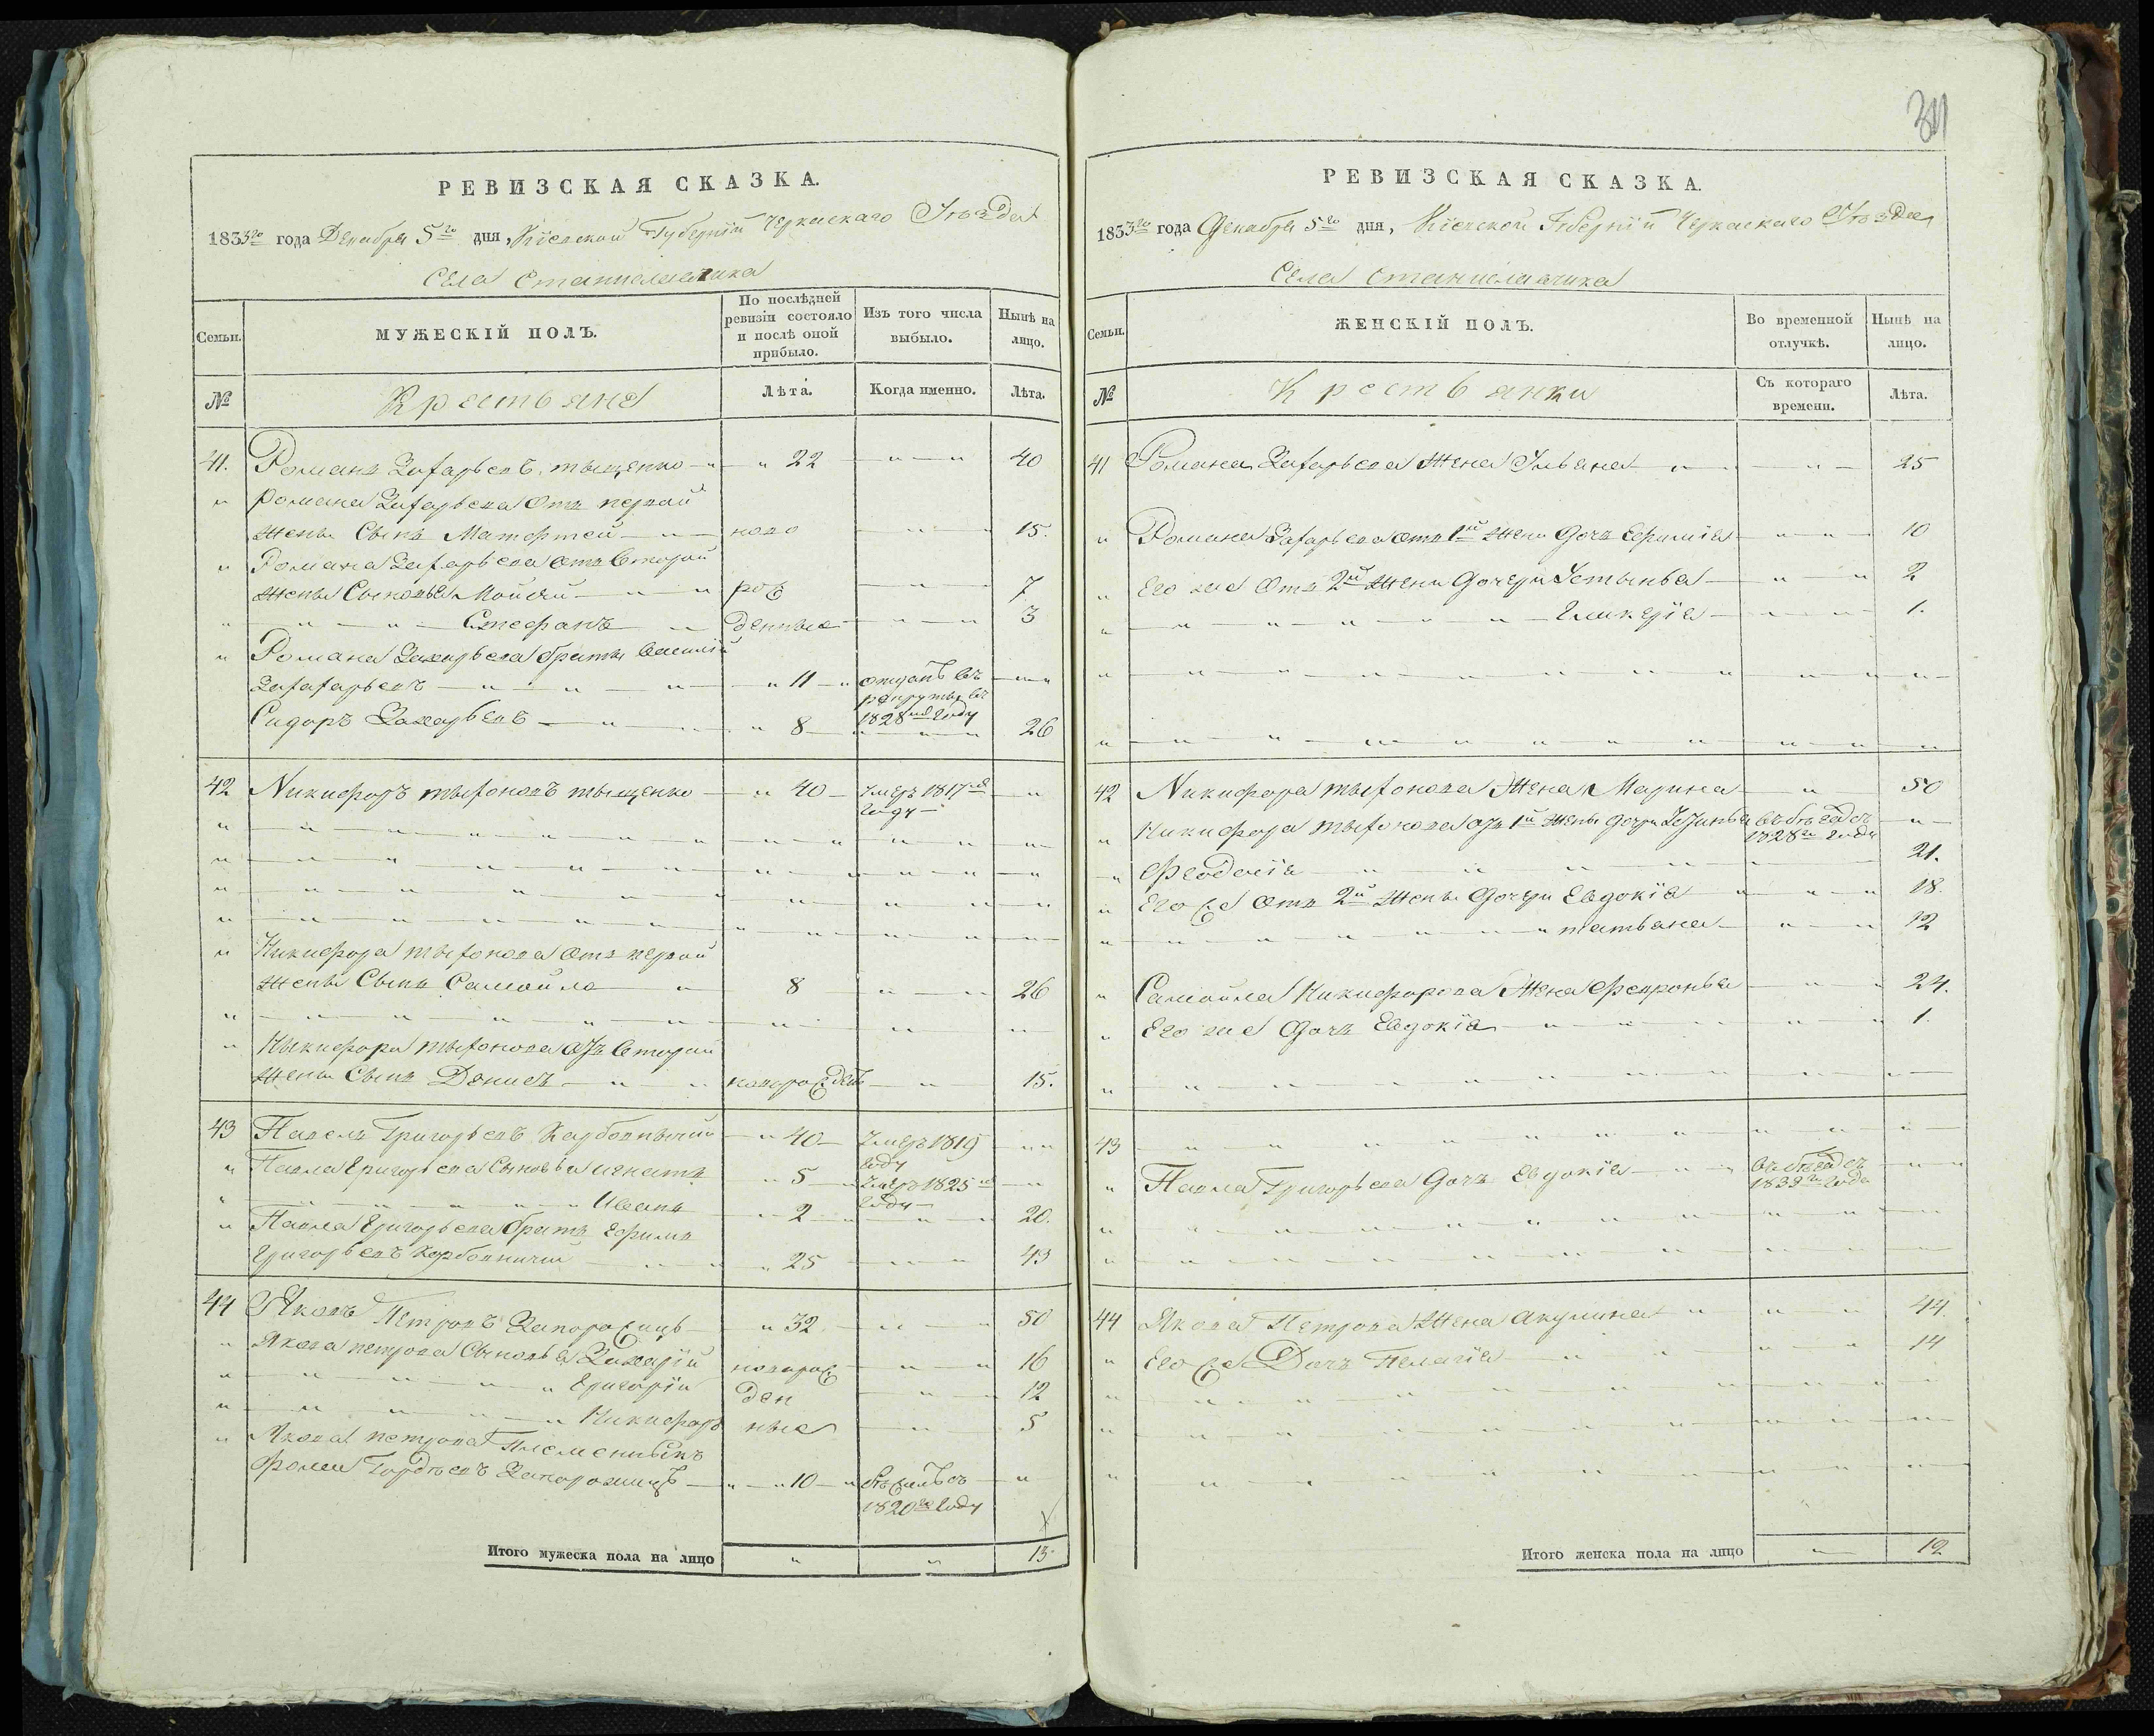 РЕВИЗСКАЯ СКАЗКА.
1833го года Декабря 5го дня, Кіевской Губерніи Черкаскаго Уѣзда
Села Станиславчика
Семьи. МУЖЕСКІЙ ПОЛЪ. По послѣдней ревизіи состояло и послѣ оной прибыло. Изъ того числа выбыло. Нынѣ на лицо.
№ Крестьяне Лѣта. Когда именно. Лѣта.
41. Романъ Захарьевъ тыщенко " 22 — " — 40
" Романа Захарьева Отъ первой
жены Сынъ Матфтей — " — ново — " — 15.
" Романа Захарьева отъ Второй
жены Сыновья Мойсей — " — рож — " — 7
" — " — " — Стефанъ — " денные — " — 3
" Романа Захарьева братья Василій
Захарьевъ — " — " — " 11 — " отданъ въ рекруты въ 1828мъ Году — " —
Сидоръ Захарьевъ — " — " 8 — " — 26
42 Никифоръ тыхоновъ тыщенко — " 40 — Умеръ 1817го Году — "
" Никифора тыхонова отъ первой
жены Сынъ Самойло — " 8 — " — 26
" Никифора тыхонова отъ Второй
жены Сынъ Денисъ — " — новорожденъ — " — 15.
43 Павелъ Григорьевъ Карбовничий — " 40 — Умеръ 1819 Году — "
" Павла Григорьева Сыновья игнатъ — " 5 — Умеръ 1825го Году — "
" — " — " — Иванъ — " 2 — " — 20.
" Павла Григорьева братъ Ефимъ
Григорьевъ Карбовничий — " 25 — " — 43
44 Яковъ Петровъ Запорожицъ — " 32 — " — 50
" Якова петрова Сыновья Захарій новорож — " — 16
" — " — " Григорій ден — " — 12
" — " — " Никифоръ ные — " — 5
" Якова петрова Племенныкъ
Фома Гордѣевъ Запорожицъ — " — " 10 — " съ 1820го Году — "
Итого мужеска пола на лицо " " 13
311
РЕВИЗСКАЯ СКАЗКА.
1833го года Декабря 5го дня, Кіевской Губерніи Черкаскаго Уѣзда
Села Станиславчика
Семьи. ЖЕНСКІЙ ПОЛЪ. Во временной отлучкѣ. Нынѣ на лицо.
№ Крестьянки Съ котораго времени. Лѣта.
41 Романа Захарьева Жена Ульяна — " — 25
" Романа Захарьева отъ 1й жены Дочъ Ефимія — " — 10
" Его же Отъ 2й жены Дочери Устынья — " — 2
" — " — " — Гликерія — " — 1.
42 Никифора тыхонова Жена Марина — " — 50
" Никифора тыхонова отъ 1й жены дочери въ бѣгахъ съ 1828го Году — "
" Феодосія — " — 21.
" Его же отъ 2й жены Дочери Евдокія — " — 18.
" — " — " татьяна — " — 12
" Самойла Никифорова Жена Февронья — " — 24.
" Его же Дочъ Евдокія — " — 1.
43 — " — " —
" Павла Григорьева Дочъ Евдокія — " въ бѣгахъ съ Года — "
44 Якова Петрова Жена Акулина — " — 44.
" Его же Дочъ Пелагія — " — 14
Итого женска пола на лицо — " — 12